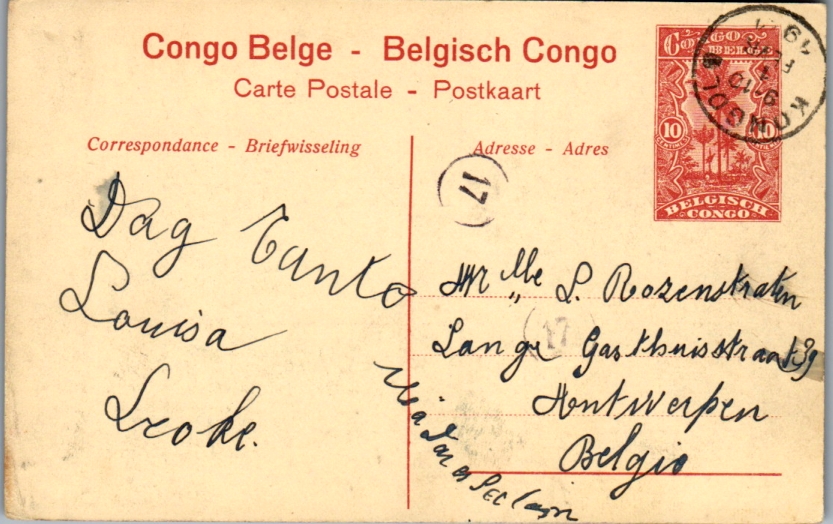 Congo Belge - Belgisch Congo
Carte Postale - Postkaart
Correspondance - Briefwisseling
Adresse - Adres
CONGO
BELGE
10
10
BELGISCH
CONGO
KONGOLO
17
Dag Tante
Louisa
Leoke.
Mr Me L. Rozenstraten
17
Lange Gasthuisstraat 39
Antwerpen
Belgie
via Dar es